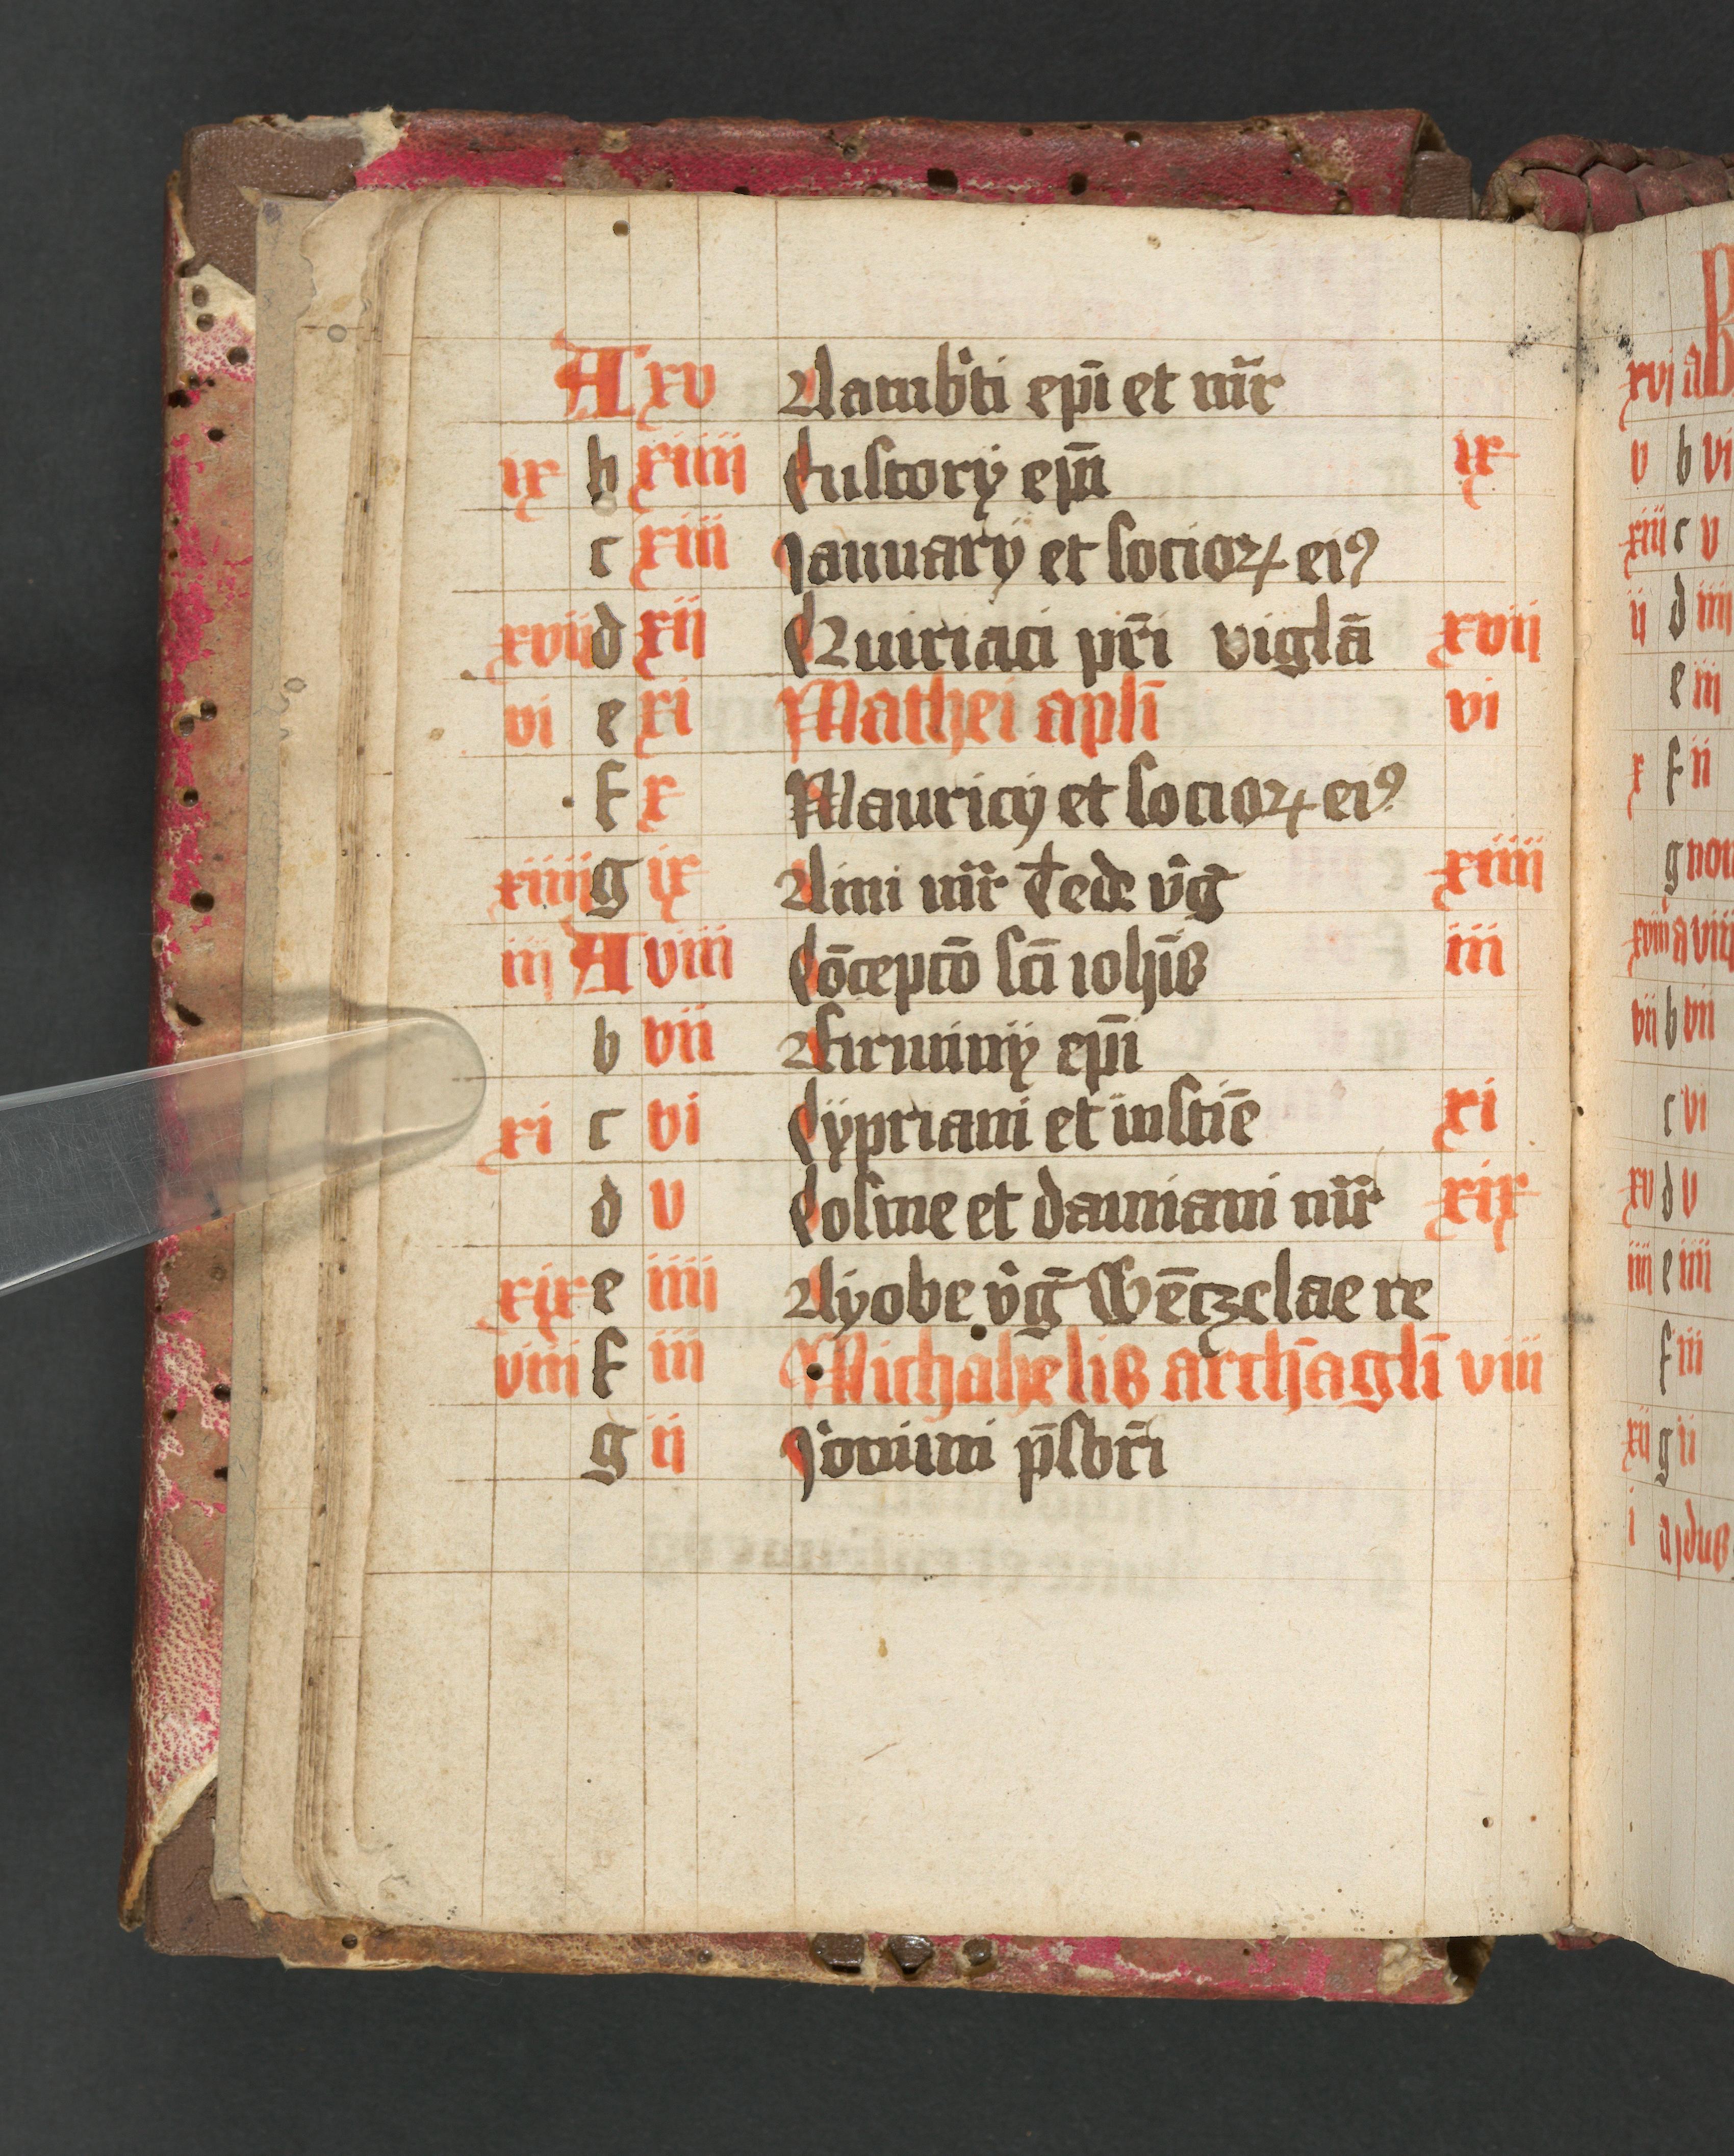 A xv Lamb̓ti ep̄i et m̄r
ix b xiiii Eustorÿ ep̄i
c xiii Januarÿ et socioꝝ eiꝰ
xvii d xii Quiriaci pr̄i viglā xvii
vi e xi Mathei apl̄i vi
f x Mauricÿ et socioꝝ eiꝰ
xiiii g ix Lini m̄r Tecle v̓ḡ xiiii
iii A viii Cōcepcō sc̄i ioh̄is iii
b vii Firminÿ ep̄i
xi c vi Cÿpriani et iustīe xi
d v Cosme et damiani m̄r xix
xix e iiii Lÿobe v̓ḡ Wēczelae re
viii f iii Michahelis arch̄agl̄i viii
g ii J̓onimi p̄sbr̄i
xvi a
v b vi
xiii c v
ii d iiii
e iii
x f ii
g non
xviii a viii
vii b vii
c vi
xv d v
iiii e iiii
f iii
xii g ii
i a jdus